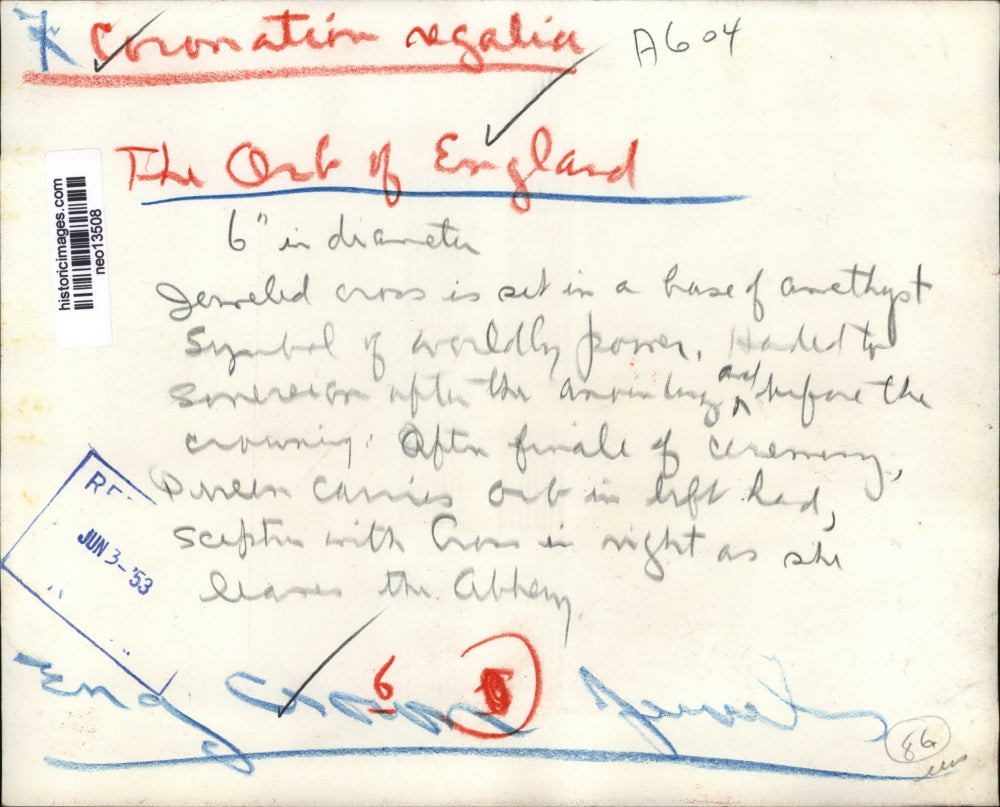 Coronation regalia A604
The Orb of England
historicimages.com
neo13508
6" in diameter
Jeweled cross is set in a base of amethyst
Symbol of worldly power. Handed to
sovereign after the anointing and before the
crowning. After finale of ceremony,
Queen carries orb in left hand,
sceptre with Cross in right as she
leaves the Abbey.
JUN 3-'53
6
Eng Crown Jewels
86